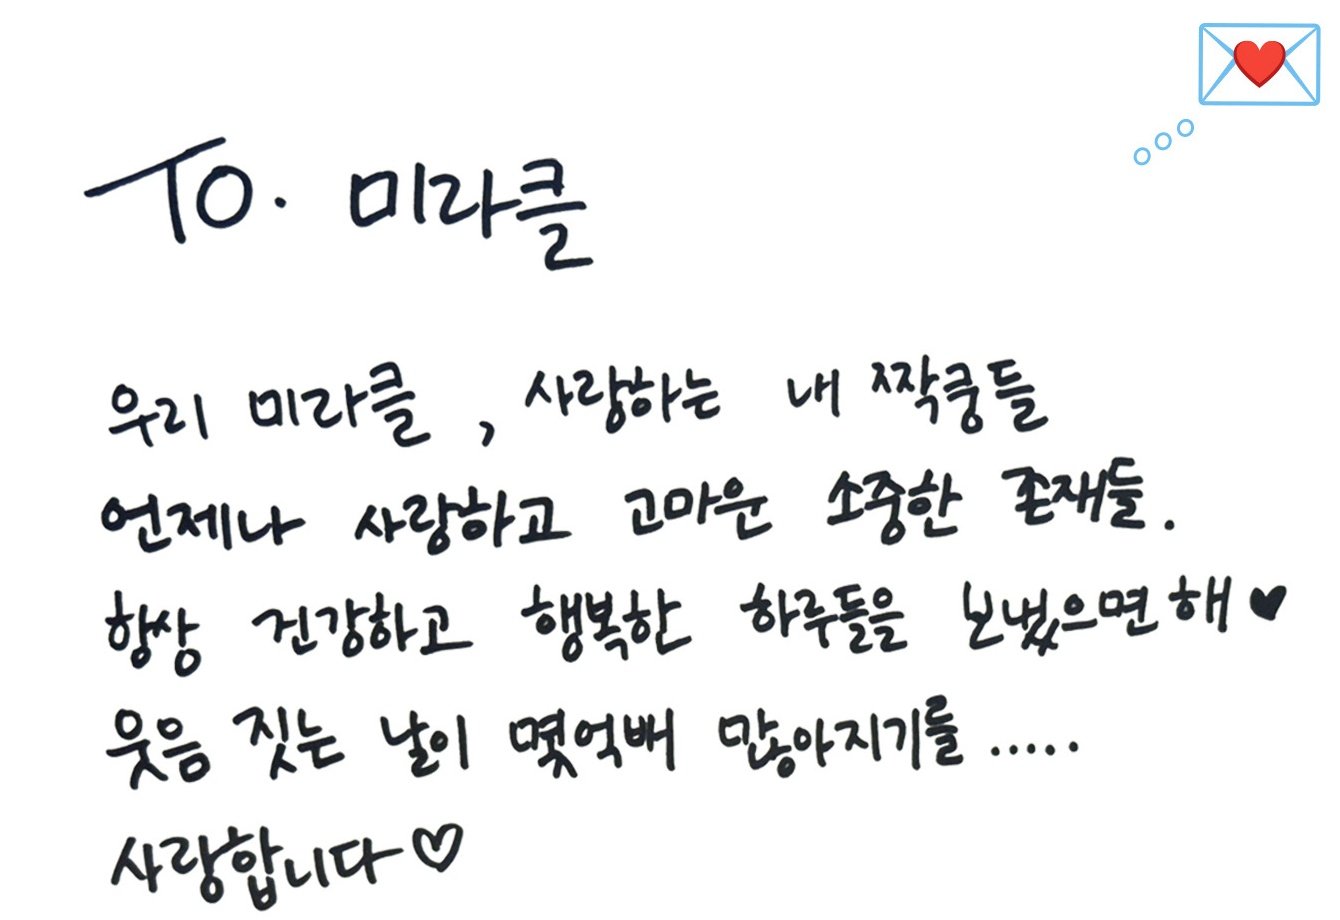 TO. 미라클
우리 미라클, 사랑하는 내 짝쿵들
언제나 사랑하고 고마운 소중한 존재들.
항상 건강하고 행복한 하루들을 보냈으면 해♥
웃음 짓는 날이 몇억배 많아지기를.....
사랑합니다♡